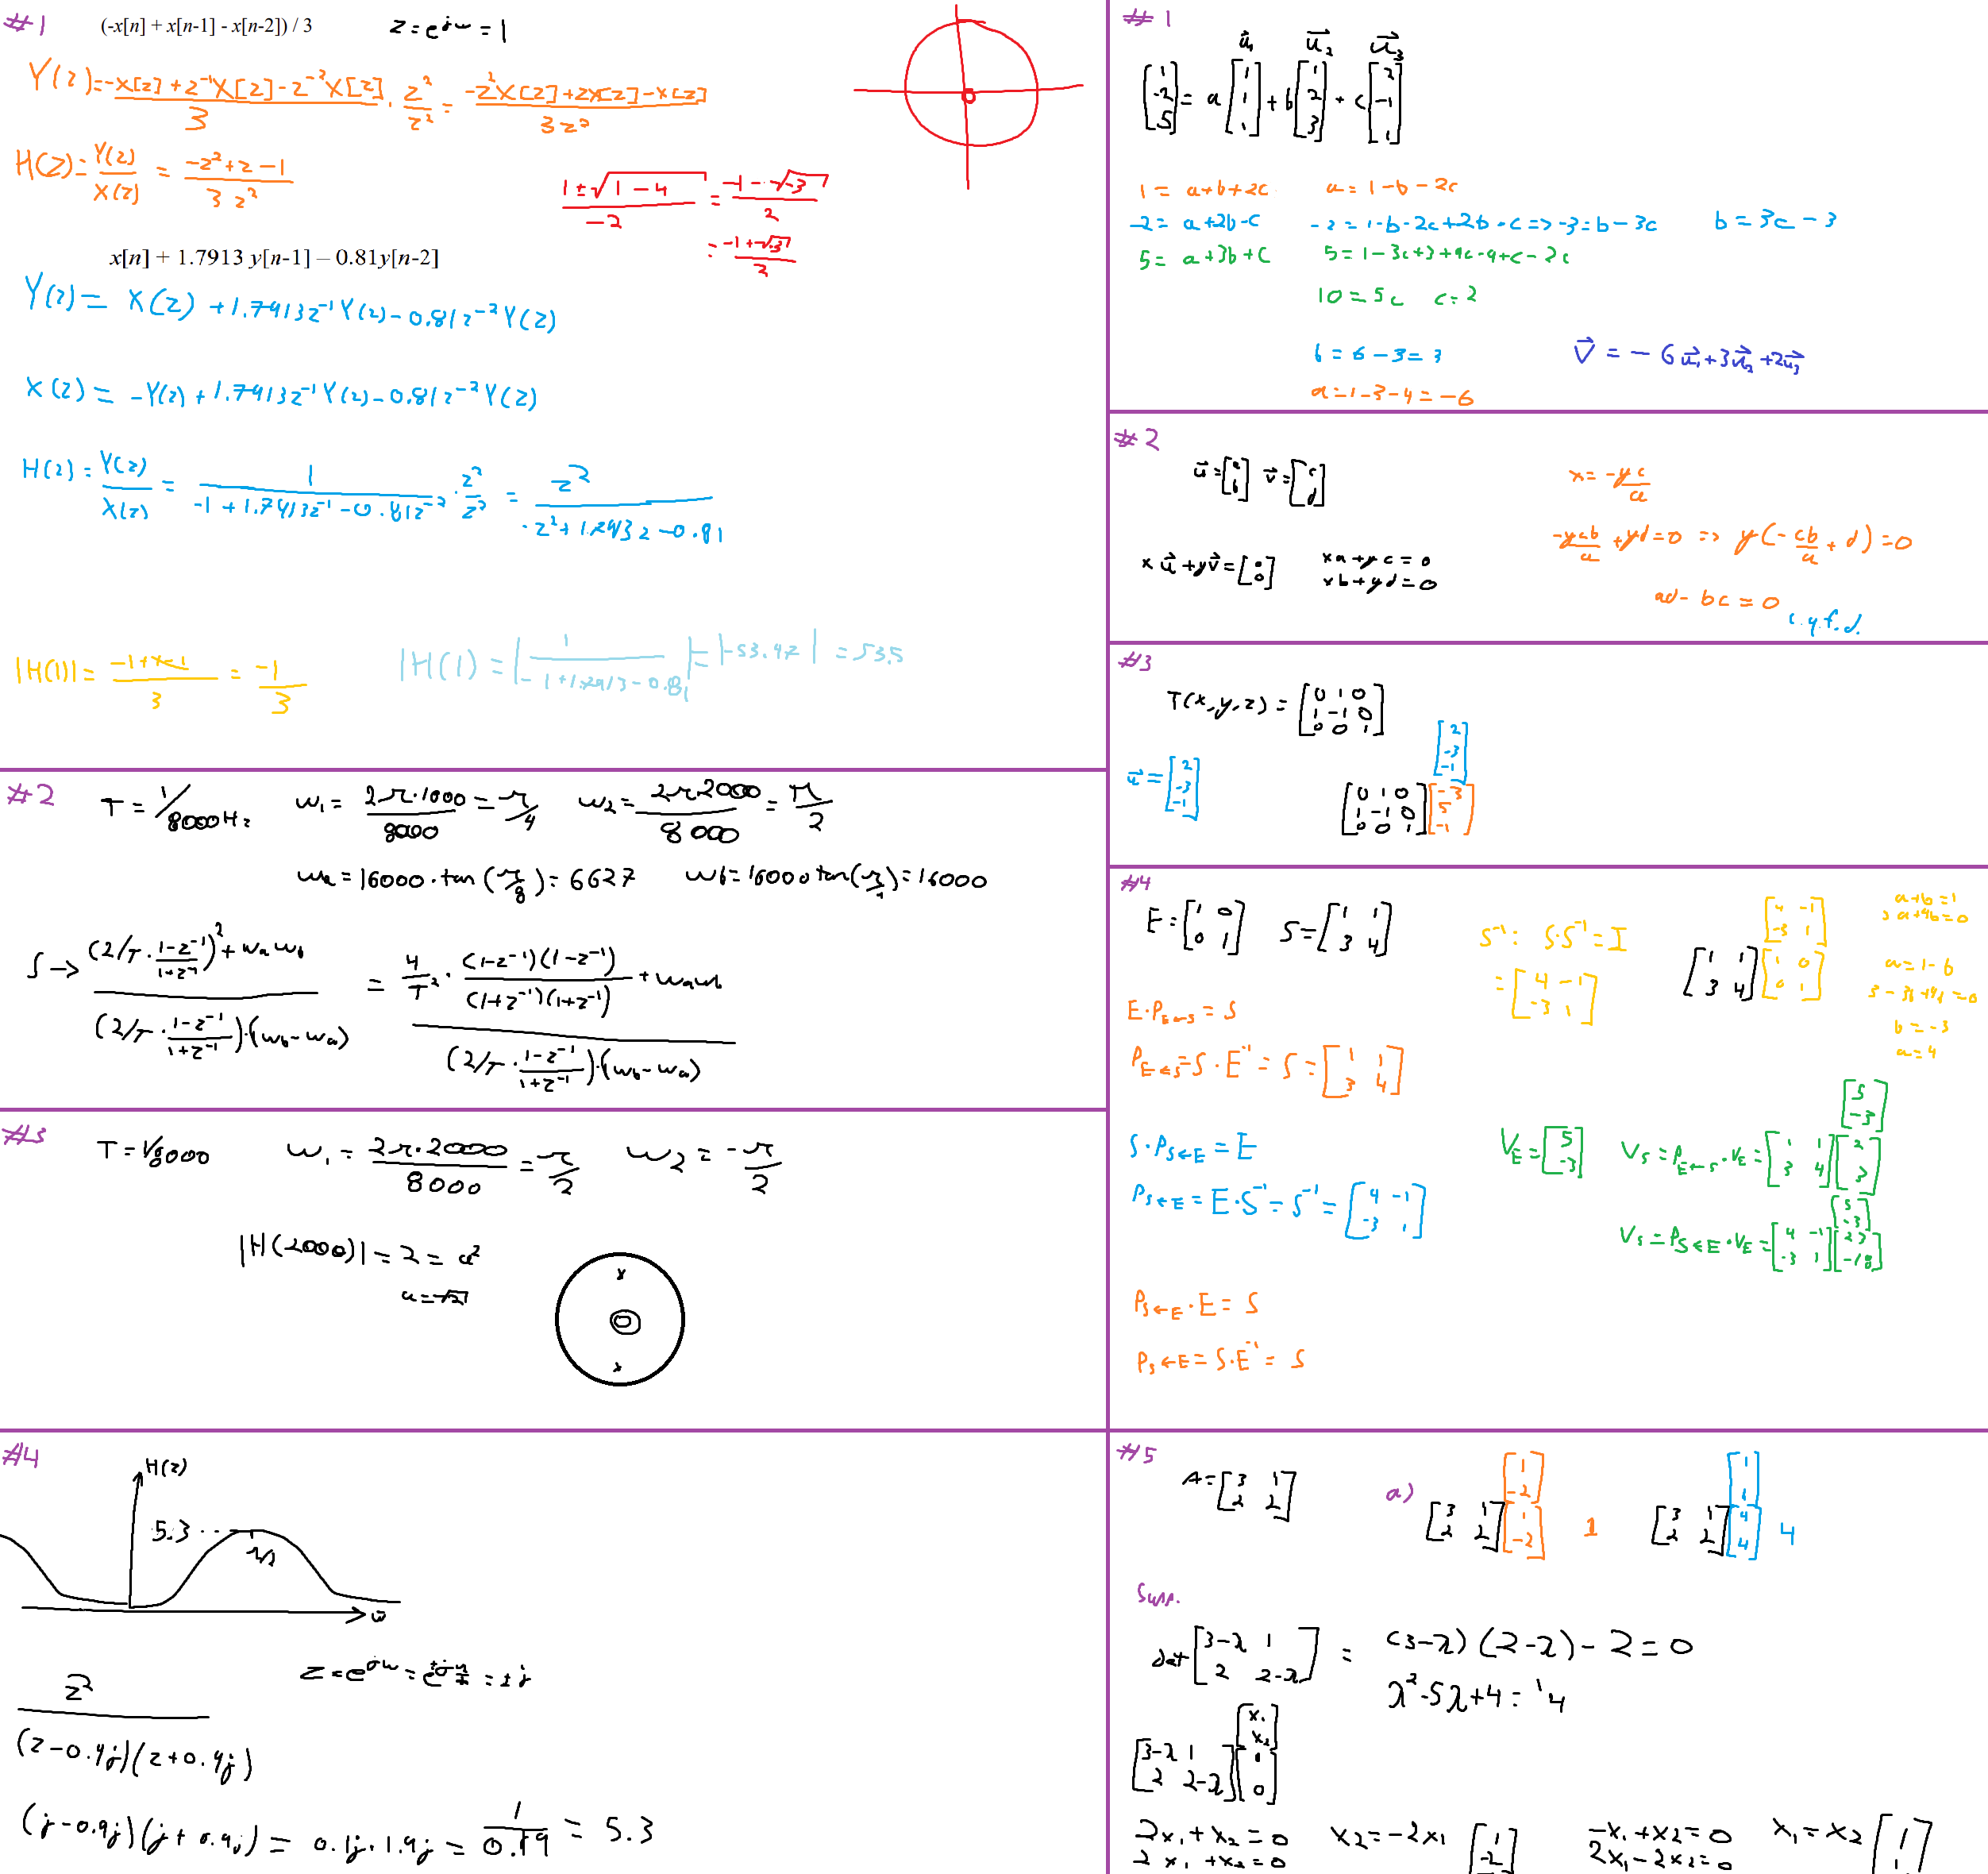 #1
(-x[n] + x[n-1] - x[n-2]) / 3
z = e^jω = 1
Y(z) = -X[z] + z^-1 X[z] - z^-2 X[z] / 3 · z^2 / z^2 = -z^2 X[z] + zX[z] - X[z] / 3z^2
H(z) = Y(z) / X(z) = -z^2 + z - 1 / 3z^2
1 ± √1 - 4 / -2 = -1 - √-3 / 2
= -1 + √-3 / 2
x[n] + 1.7913 y[n-1] – 0.81y[n-2]
Y(z) = X(z) + 1.7913z^-1 Y(z) - 0.81z^-2 Y(z)
X(z) = -Y(z) + 1.7913z^-1 Y(z) - 0.81z^-2 Y(z)
H(z) = Y(z) / X(z) = 1 / -1 + 1.7913z^-1 - 0.81z^-2 · z^2 / z^2 = z^2 / -z^2 + 1.7913z - 0.81
|H(1)| = -1 + 1 - 1 / 3 = -1 / 3
|H(1) = | 1 / -1 + 1.7913 - 0.81 | = |-53.47| = 53.5
#2
T = 1/8000Hz
ω1 = 2π·1000 / 8000 = π/4
ω2 = 2π2000 / 8000 = π/2
ωa = 16000·tan(π/8) = 6627
ωb = 16000 tan(π/4) = 16000
S → (2/T · 1-z^-1 / 1+z^-1)^2 + ωa ωb / (2/T · 1-z^-1 / 1+z^-1)·(ωb - ωa) = 4/T^2 · (1-z^-1)(1-z^-1) / (1+z^-1)(1+z^-1) + ωaωb / (2/T · 1-z^-1 / 1+z^-1)·(ωb - ωa)
#3
T = 1/8000
ω1 = 2π·2000 / 8000 = π/2
ω2 = -π/2
|H(2000)| = 2 = a^2
a = √2
x
x
#4
H(z)
5.3
π/2
ω
z = e^jω = e^±jπ/2 = ±j
z^2 / (z-0.9j)(z+0.9j)
(j-0.9j)(j+0.9j) = 0.1j·1.9j = 1 / 0.19 = 5.3
#1
u1 u2 u3
[1 -2 5] = a [1 1 1] + b [1 2 3] + c [2 -1 1]
1 = a+b+2c
a = 1-b-2c
-2 = a+2b-c
-2 = 1-b-2c+2b-c => -3 = b-3c
b = 3c-3
5 = a+3b+c
5 = 1-3c+3+9c-9+c-2c
10 = 5c c = 2
b = 6-3 = 3
V = -6u1+3u2+2u3
a = 1-3-4 = -6
#2
u = [a b] v = [c d]
x = -yc / a
-ycb / a + yd = 0 => y(-cb / a + d) = 0
xu + yv = [0 0]
xa+yc = 0
xb+yd = 0
ad - bc = 0
c.q.f.d.
#3
T(x,y,z) = [0 1 0 1 -1 0 0 0 1]
[2 -3 -1]
u = [2 -3 -1]
[0 1 0 1 -1 0 0 0 1] [-3 5 -1]
#4
E = [1 0 0 1]
S = [1 1 3 4]
S^-1: S·S^-1 = I
= [4 -1 -3 1]
[4 -1 -3 1]
[1 1 3 4] [1 0 0 1]
a+b = 1
3a+4b = 0
a = 1-b
3-3b+4b = 0
b = -3
a = 4
E·P E←S = S
P E←S = S·E^-1 = S = [1 1 3 4]
S·P S←E = E
P S←E = E·S^-1 = S^-1 = [4 -1 -3 1]
V E = [5 -3]
[5 -3]
V S = P E←S · V E = [1 1 3 4] [2 3]
[5 -3]
V S = P S←E · V E = [4 -1 -3 1] [23 -18]
P S←E · E = S
P S←E = S·E^-1 = S
#5
A = [3 1 2 2]
a)
[1 -2]
[3 1 2 2] [1 -2] 1
[1 1]
[3 1 2 2] [4 4] 4
det [3-λ 1 2 2-λ] = (3-λ)(2-λ) - 2 = 0
λ^2-5λ+4 = 1 4
[x1 x2]
[3-λ 1 2 2-λ] [0 0]
2x1+x2 = 0
2x1+x2 = 0
x2 = -2x1 [1 -2]
-x1+x2 = 0
2x1-2x2 = 0
x1 = x2 [1 1]